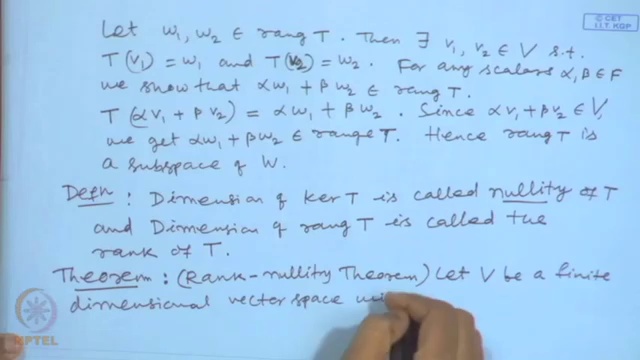 © CET
I.I.T. KGP
Let w₁, w₂ ∈ rang T. Then ∃ v₁, v₂ ∈ V s.t.
T(v₁) = w₁ and T(v₂) = w₂. For any scalars α, β ∈ F
we show that αw₁ + βw₂ ∈ rang T.
T(αv₁ + βv₂) = αw₁ + βw₂. Since αv₁ + βv₂ ∈ V,
we get αw₁ + βw₂ ∈ range T. Hence rang T is
a subspace of W.
Defn : Dimension of ker T is called nullity of T
and Dimension of rang T is called the
rank of T.
Theorem : (Rank-nullity Theorem) Let V be a finite
dimensional vector space wi
NPTEL